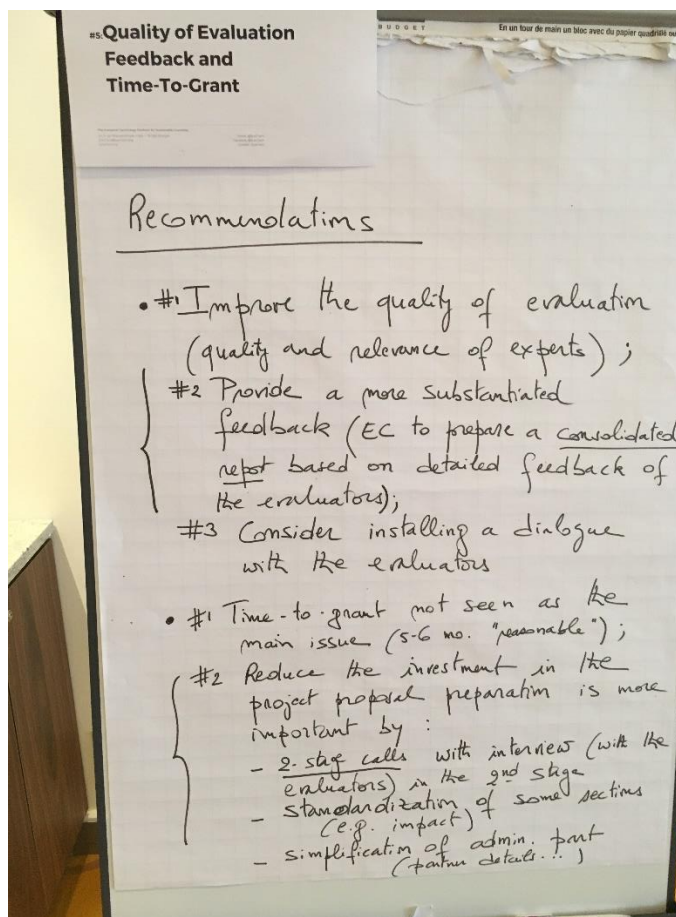 #5: Quality of Evaluation
Feedback and
Time-To-Grant
BUDGET
En un tour de main un bloc avec du papier quadrillé ou
Recommendations
• #1 Improve the quality of evaluation
(quality and relevance of experts) ;
#2 Provide a more substantiated
feedback (EC to prepare a consolidated
repot based on detailed feedback of
the evaluators);
#3 Consider installing a dialogue
with the evaluators
• #1 Time-to-grant not seen as the
main issue (5-6 mo. "reasonable") ;
#2 Reduce the investment in the
project proposal preparation is more
important by :
- 2-stag calls with interview (with the
evaluators) in the 2nd stage
- standardization of some sections
(e.g. impact)
- simplification of admin. part
(partner details...)